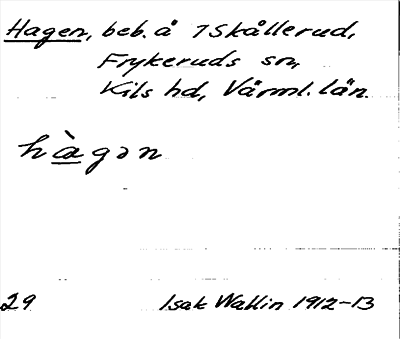 Hagen, beb. å 7 Skållerud,
Frykeruds sn,
Kils hd, Värml. län.
hàgən
29 Isak Wallin 1912-13